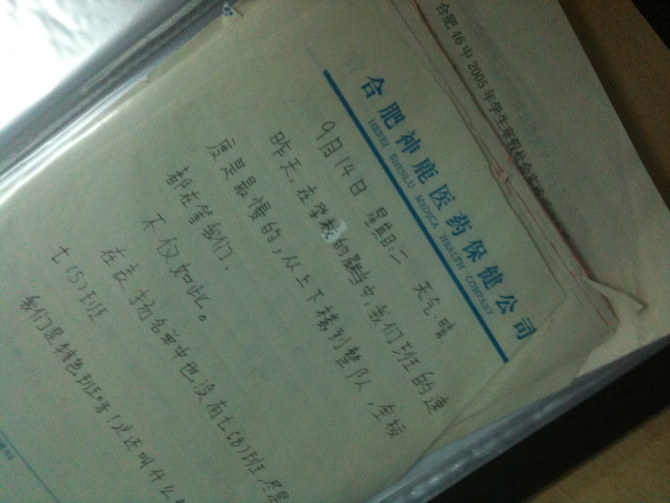 合肥46中2005年学生寒假社会实践
合肥神鹿医药保健公司
HEFEI SHENLU MEDICA HEALTH COMPANY
9月14日 星期二 天气:晴
昨天,在学校的 中,我们班的速
度是最慢的,从上下楼到整队,全校
都在等我们.
不仅如此。
在表扬名单中也没有七(8)班,尽是
七(5)班
我们是特色班呀!这还叫什么